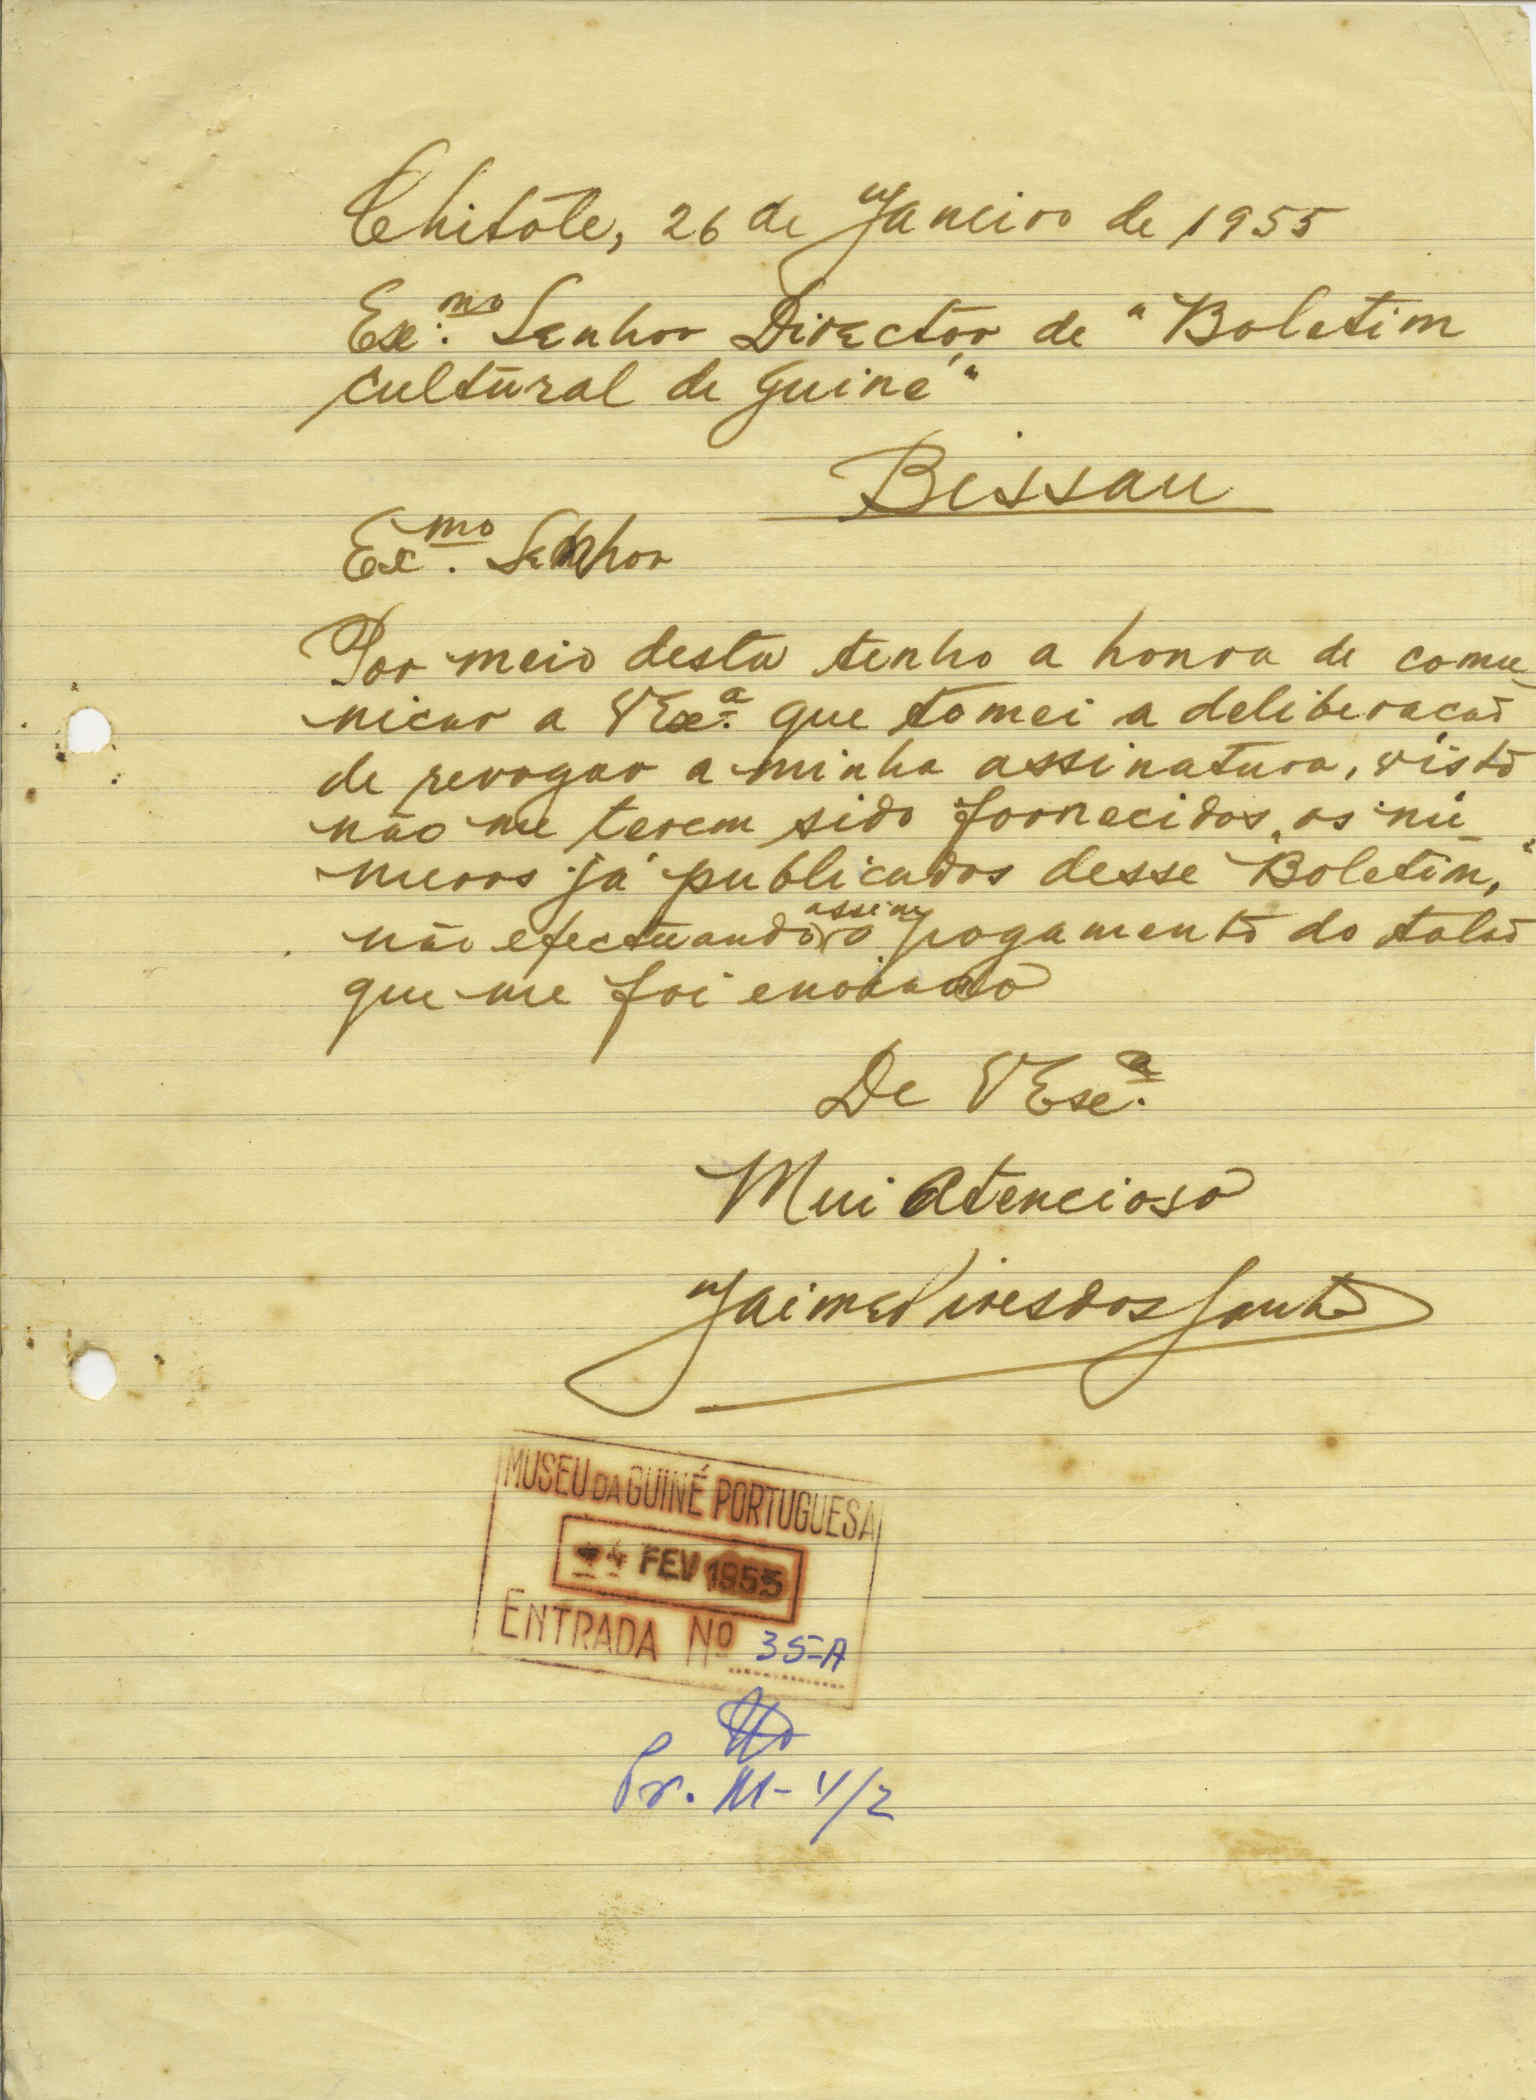 Chitole, 26 de Janeiro de 1955
Ex.mo Senhor Director de "Boletim
cultural de Guiné"
Bissau
Ex.mo Senhor
Por meio desta tenho a honra de comu-
nicar a V Ex.ª que tomei a deliberação
de revogar a minha assinatura, visto
não me terem sido fornecidos, os nú-
meros já publicados desse "Boletim,"
não efectuando assim o pagamento do talão
que me foi enviado
De V Ex.ª
Mui Atencioso
Jaime Pires dos Santos
MUSEU DA GUINÉ PORTUGUESA
FEV 1955
ENTRADA Nº 35-A
Pr. M-4/2